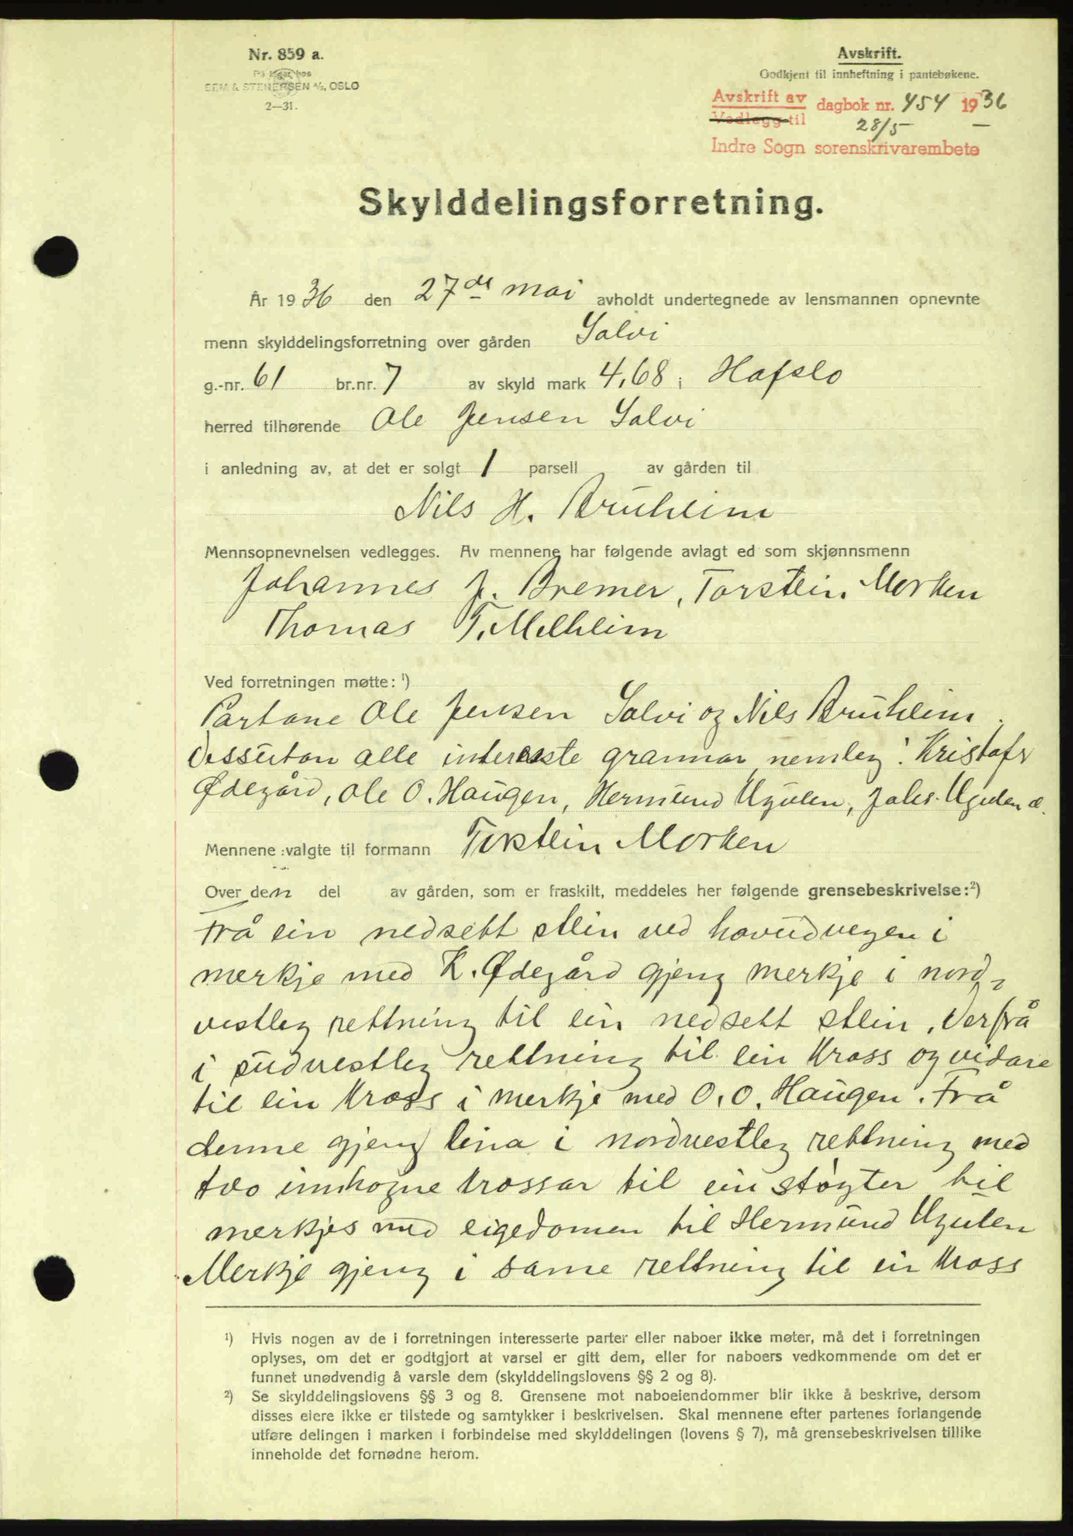 Nr. 859 a.
På lager hos
SEM & STENERSEN A/S, OSLO
2—31.
Avskrift.
Godkjent til innheftning i pantebøkene.
Avskrift av
Vedlegg til
dagbok nr. 454 1936
28/5
Indre Sogn sorenskrivarembete
Skylddelingsforretning.
År 1936 den 27de mai avholdt undertegnede av lensmannen opnevnte
menn skylddelingsforretning over gården Solvi
g.-nr. 61 br.nr. 7 av skyld mark 4,68 i Hafslo
herred tilhørende Ole Jensen Solvi
i anledning av, at det er solgt 1 parsell av gården til
Nils H. Bruheim
Mennsopnevnelsen vedlegges. Av mennene har følgende avlagt ed som skjønnsmenn
Johannes J. Bremer, Torstein Morken
Thomas T. Melheim
Ved forretningen møtte: ¹)
Partane Ole Jensen Solvi og Nils Bruheim.
dessutan alle interesste grannar nemleg: Kristofr
Ødegård, Ole O. Haugen, Hermund Ugulen, Johs. Ugulen d.
Mennene valgte til formann Torstein Morken
Over den del av gården, som er fraskilt, meddeles her følgende grensebeskrivelse:²)
Frå ein nedsett stein ved hovudvegen i
merkje med K. Ødegård gjeng merkje i nord-
vestleg rettning til ein nedsett stein, derfrå
i sudvestleg rettning til ein kross og vidare
til ein kross i merkje med O. O. Haugen. Frå
denne gjeng lina i nordvestleg rettning med
tvo innhogne krossar til ein støyter til
merkjes med eigedomen til Hermund Ugulen
Merkje gjeng i same rettning til ein kross
¹) Hvis nogen av de i forretningen interesserte parter eller naboer ikke møter, må det i forretningen
oplyses, om det er godtgjort at varsel er gitt dem, eller for naboers vedkommende om det er
funnet unødvendig å varsle dem (skylddelingslovens §§ 2 og 8).
²) Se skylddelingslovens §§ 3 og 8. Grensene mot naboeiendommer blir ikke å beskrive, dersom
disses eiere ikke er tilstede og samtykker i beskrivelsen. Skal mennene efter partenes forlangende
utføre delingen i marken i forbindelse med skylddelingen (lovens § 7), må grensebeskrivelsen tillike
inneholde det fornødne herom.